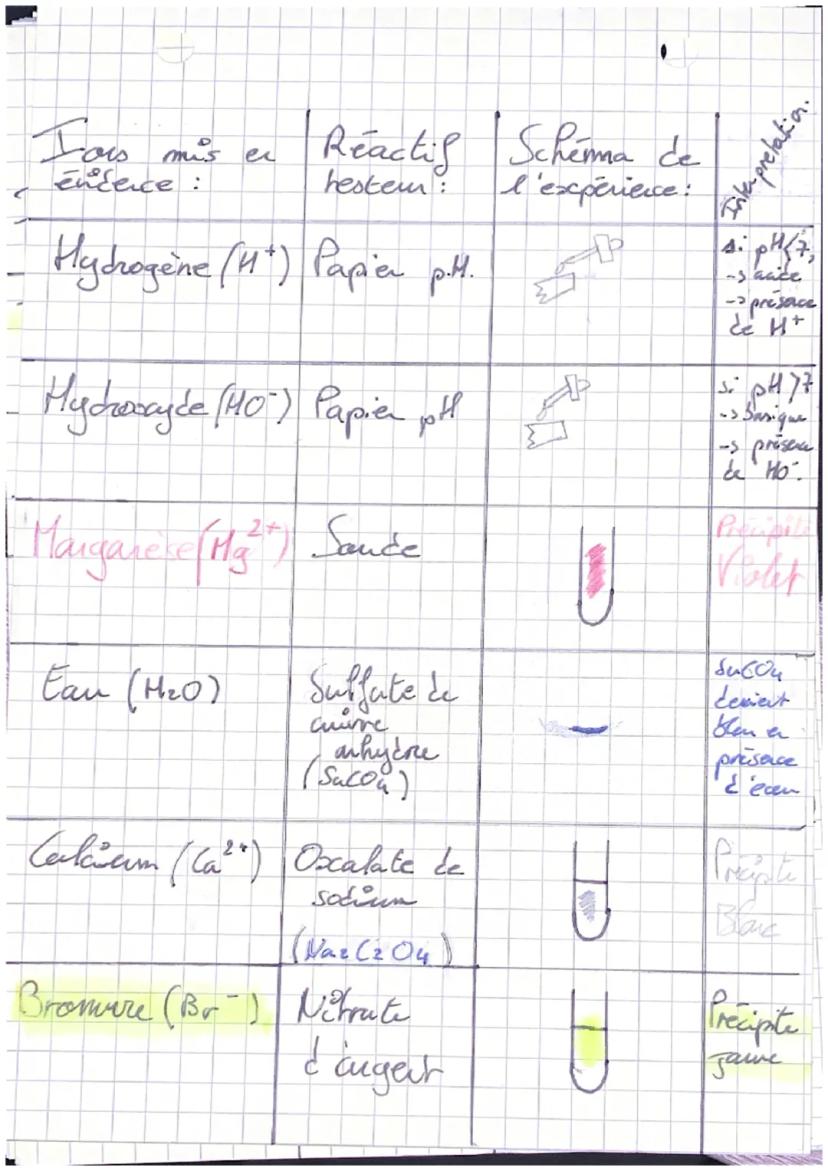 Ions mis en
évidence :
Réactif
testeur :
Schéma de
l'expérience :
Interprétation.
Hydrogène (H⁺)
Papier pH.
si pH<7,
-> acide
-> présence
de H⁺
Hydroxyde (HO⁻)
Papier pH
si pH>7
-> basique
-> présence
de HO⁻.
Manganèse (Mg²⁺)
Soude
Précipité
Violet
Eau (H₂O)
Sulfate de
cuivre
anhydre
(SuCO₄)
SuCO₄
devient
bleu en
présence
d'eau
Calcium (Ca²⁺)
Oxalate de
sodium
(Na₂C₂O₄)
Précipite
Blanc
Bromure (Br⁻)
Nitrate
d'argent
Précipite
jaune